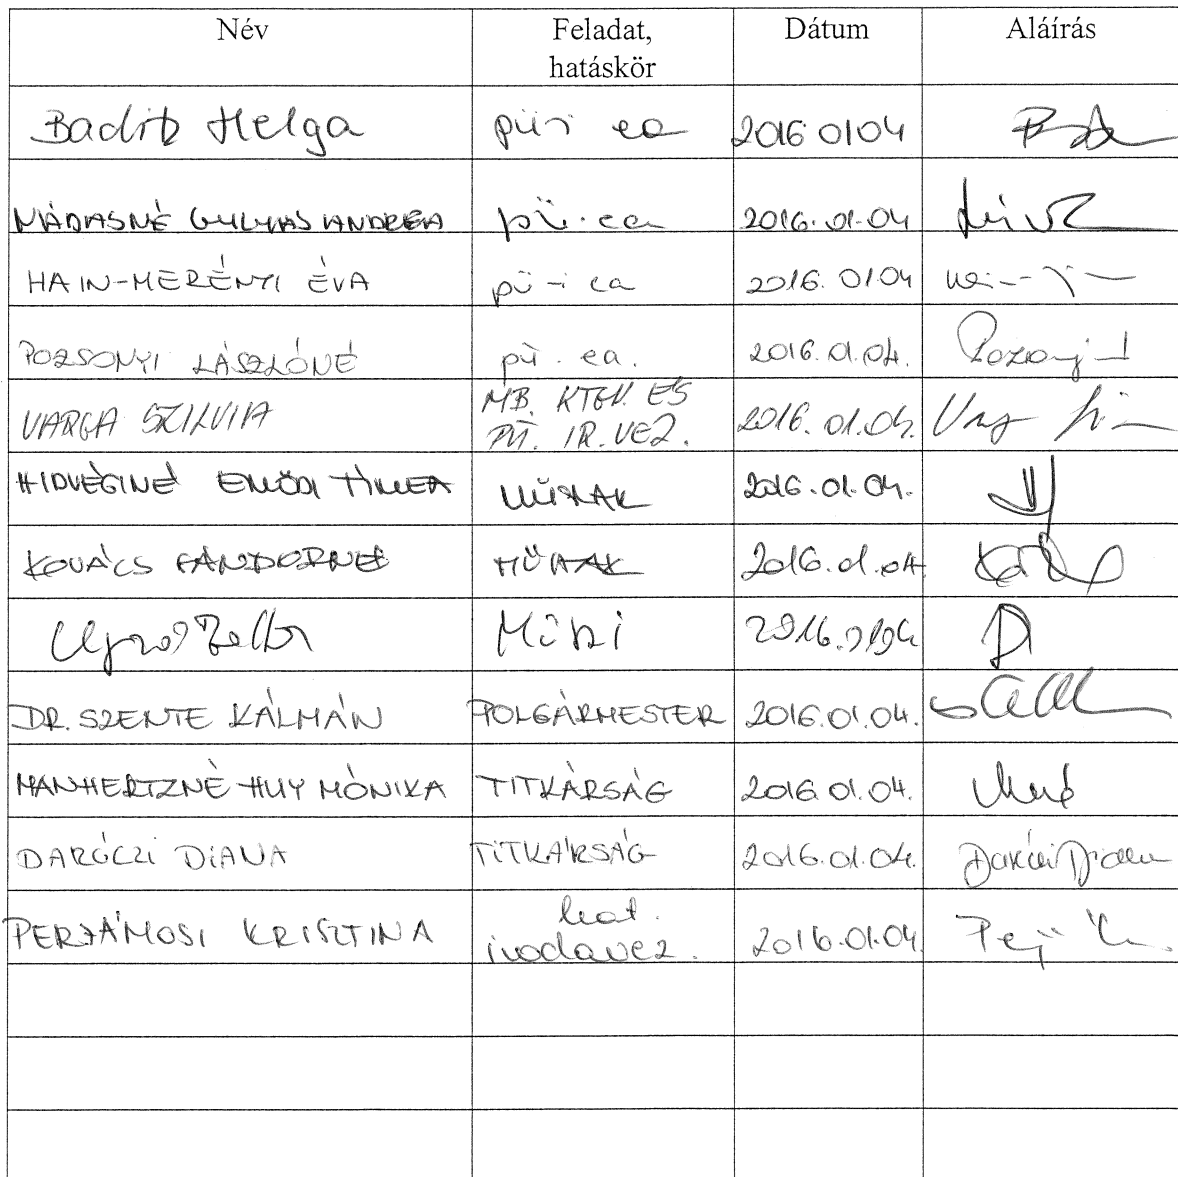 Név Feladat, hatáskör Dátum Aláírás
Badit Helga püi ea 2016 0104
MÁDASNÉ GULYÁS ANDREA pü. ea 2016.01.04
HAIN-MERÉNYI ÉVA pü-i ea 2016.0104
POZSONYI LÁSZLÓNÉ pü. ea. 2016.01.04.
VARGA SZILVIA MB. KTGV. ÉS PÜ. IR. VEZ. 2016.01.04.
HIDVÉGINÉ EMŐDI TÍMEA MŰSZAK 2016.01.04.
KOVÁCS SÁNDORNÉ MŰSZAK 2016.01.04
2016.0104
DR. SZENTE KÁLMÁN POLGÁRMESTER 2016.01.04.
MANHERTZNÉ HUY MÓNIKA TITKÁRSÁG 2016.01.04.
DARÓCZI DIANA TITKÁRSÁG 2016.01.04. Daróczi Diana
PERJÁMOSI KRISZTINA hat. irodavez. 2016.01.04.